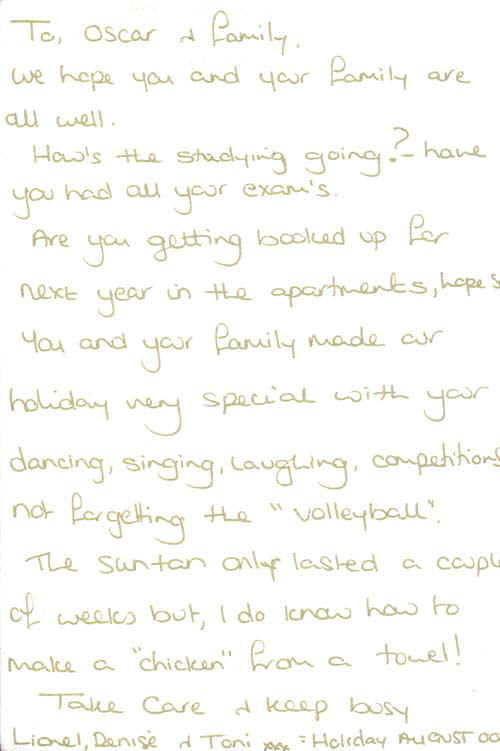 To, Oscar & family,
we hope you and your family are
all well.
How's the studying going? - have
you had all your exam's.
Are you getting booked up for
next year in the apartments, hope s
You and your family made our
holiday very special with your
dancing, singing, laughing, competitions
not forgetting the "volleyball".
The suntan only lasted a coupl
of weeks but, I do know how to
make a "chicken" from a towel!
Take Care & keep busy
Lionel, Denise & Toni xxx : Holiday AUGUST 00